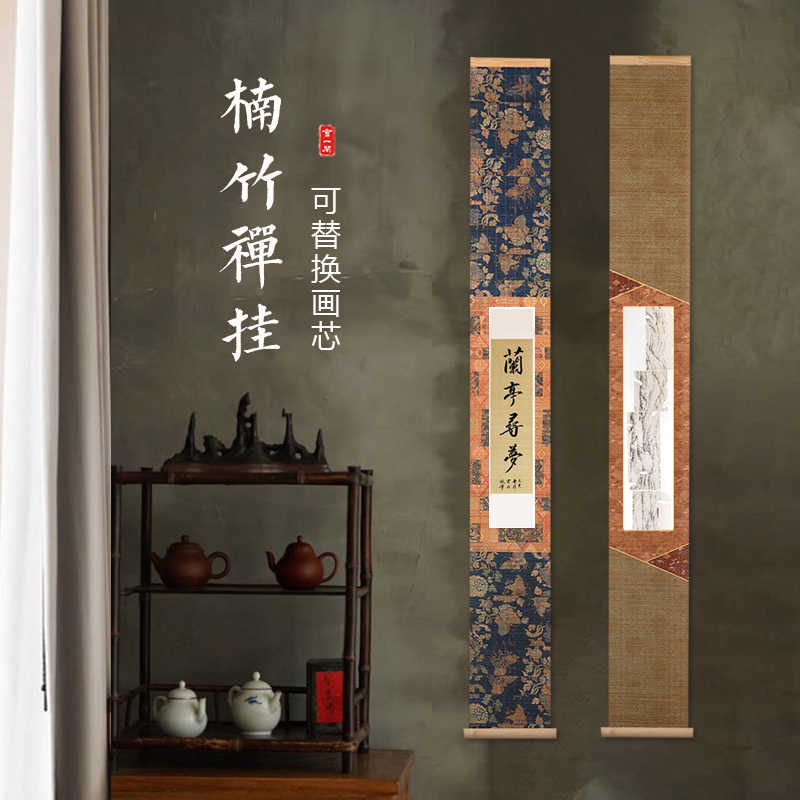 楠竹禪挂
可替换画芯
蘭亭尋夢